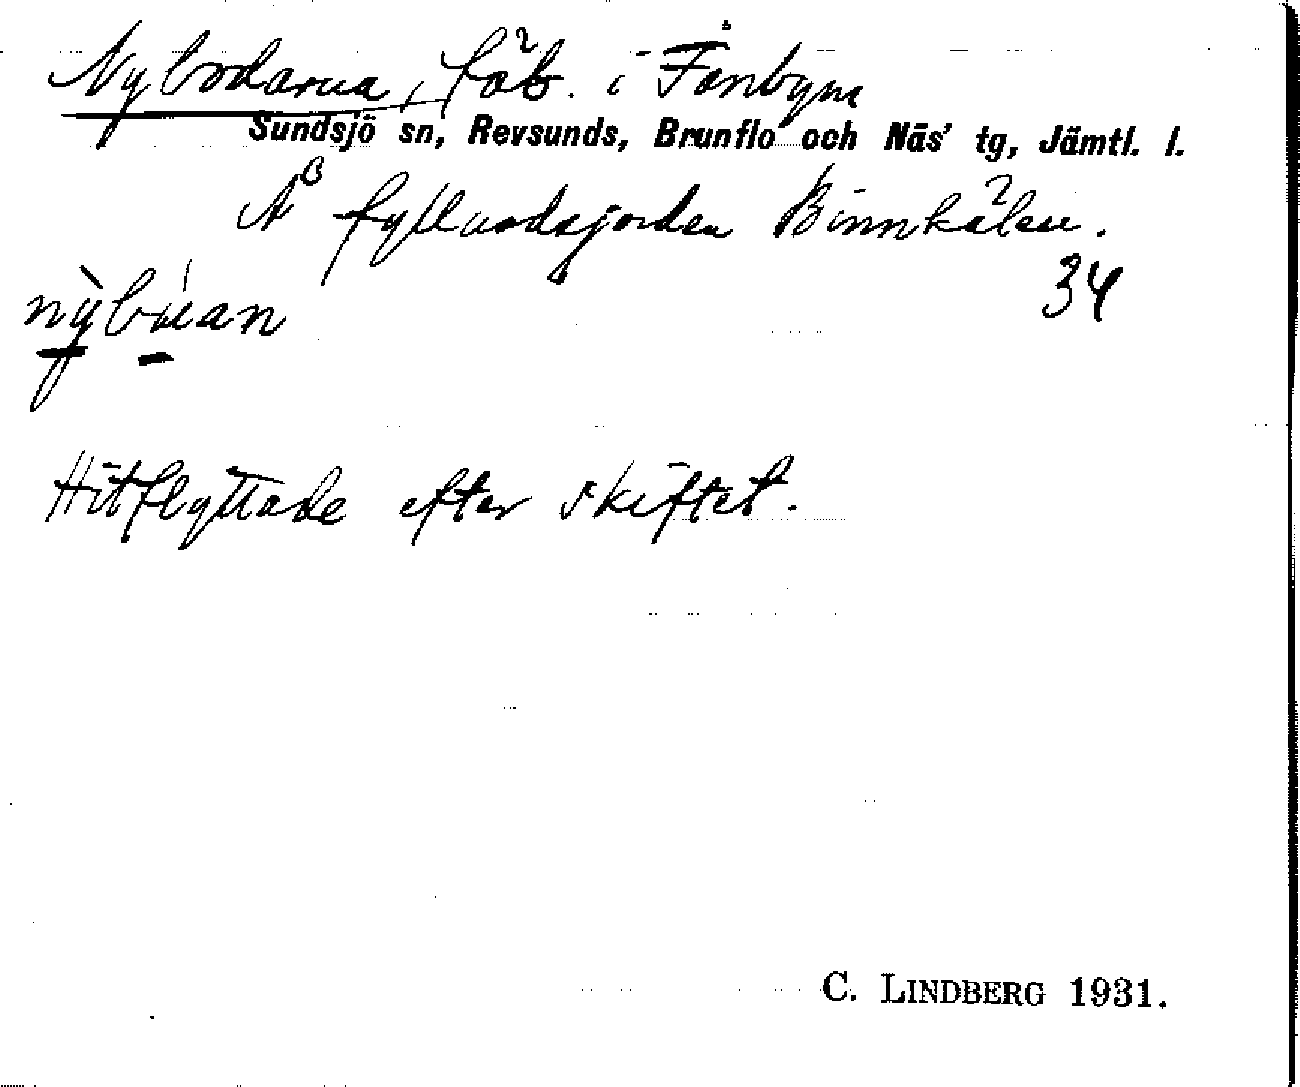 Nybodarna, fäb. i Fånbyn
Sundsjö sn, Revsunds, Brunflo och Näs' tg, Jämtl. l.
Binnkälen.
34
nỳbúan
Hitflyttade efter skiftet.
C. LINDBERG 1931.